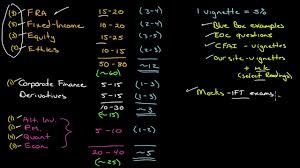 (4) FRA 15-20 (3-4)
(3) Fixed-Income 10-20 (2-4)
(3) Equity 15-25 (3-5)
(4) Ethics 10-15 (2-3)
50-80 ~12
(~60)
(1) Corporate Finance 5-15 (1-3)
Derivatives 5-15 (1-3)
10-30 ~3
(~15)
(1) Alt. Inv.
(1) P.M. 5-10 (1-2)
(4) Quant
(3) Econ.
20-40 ~5
(~25)
1 vignette = 5%
✓ Blue Box examples
✓ EOC questions
✓ CFAI - vignettes
✓ Our site - vignettes
+
(select Readings)
✓ Mocks - IFT exams!